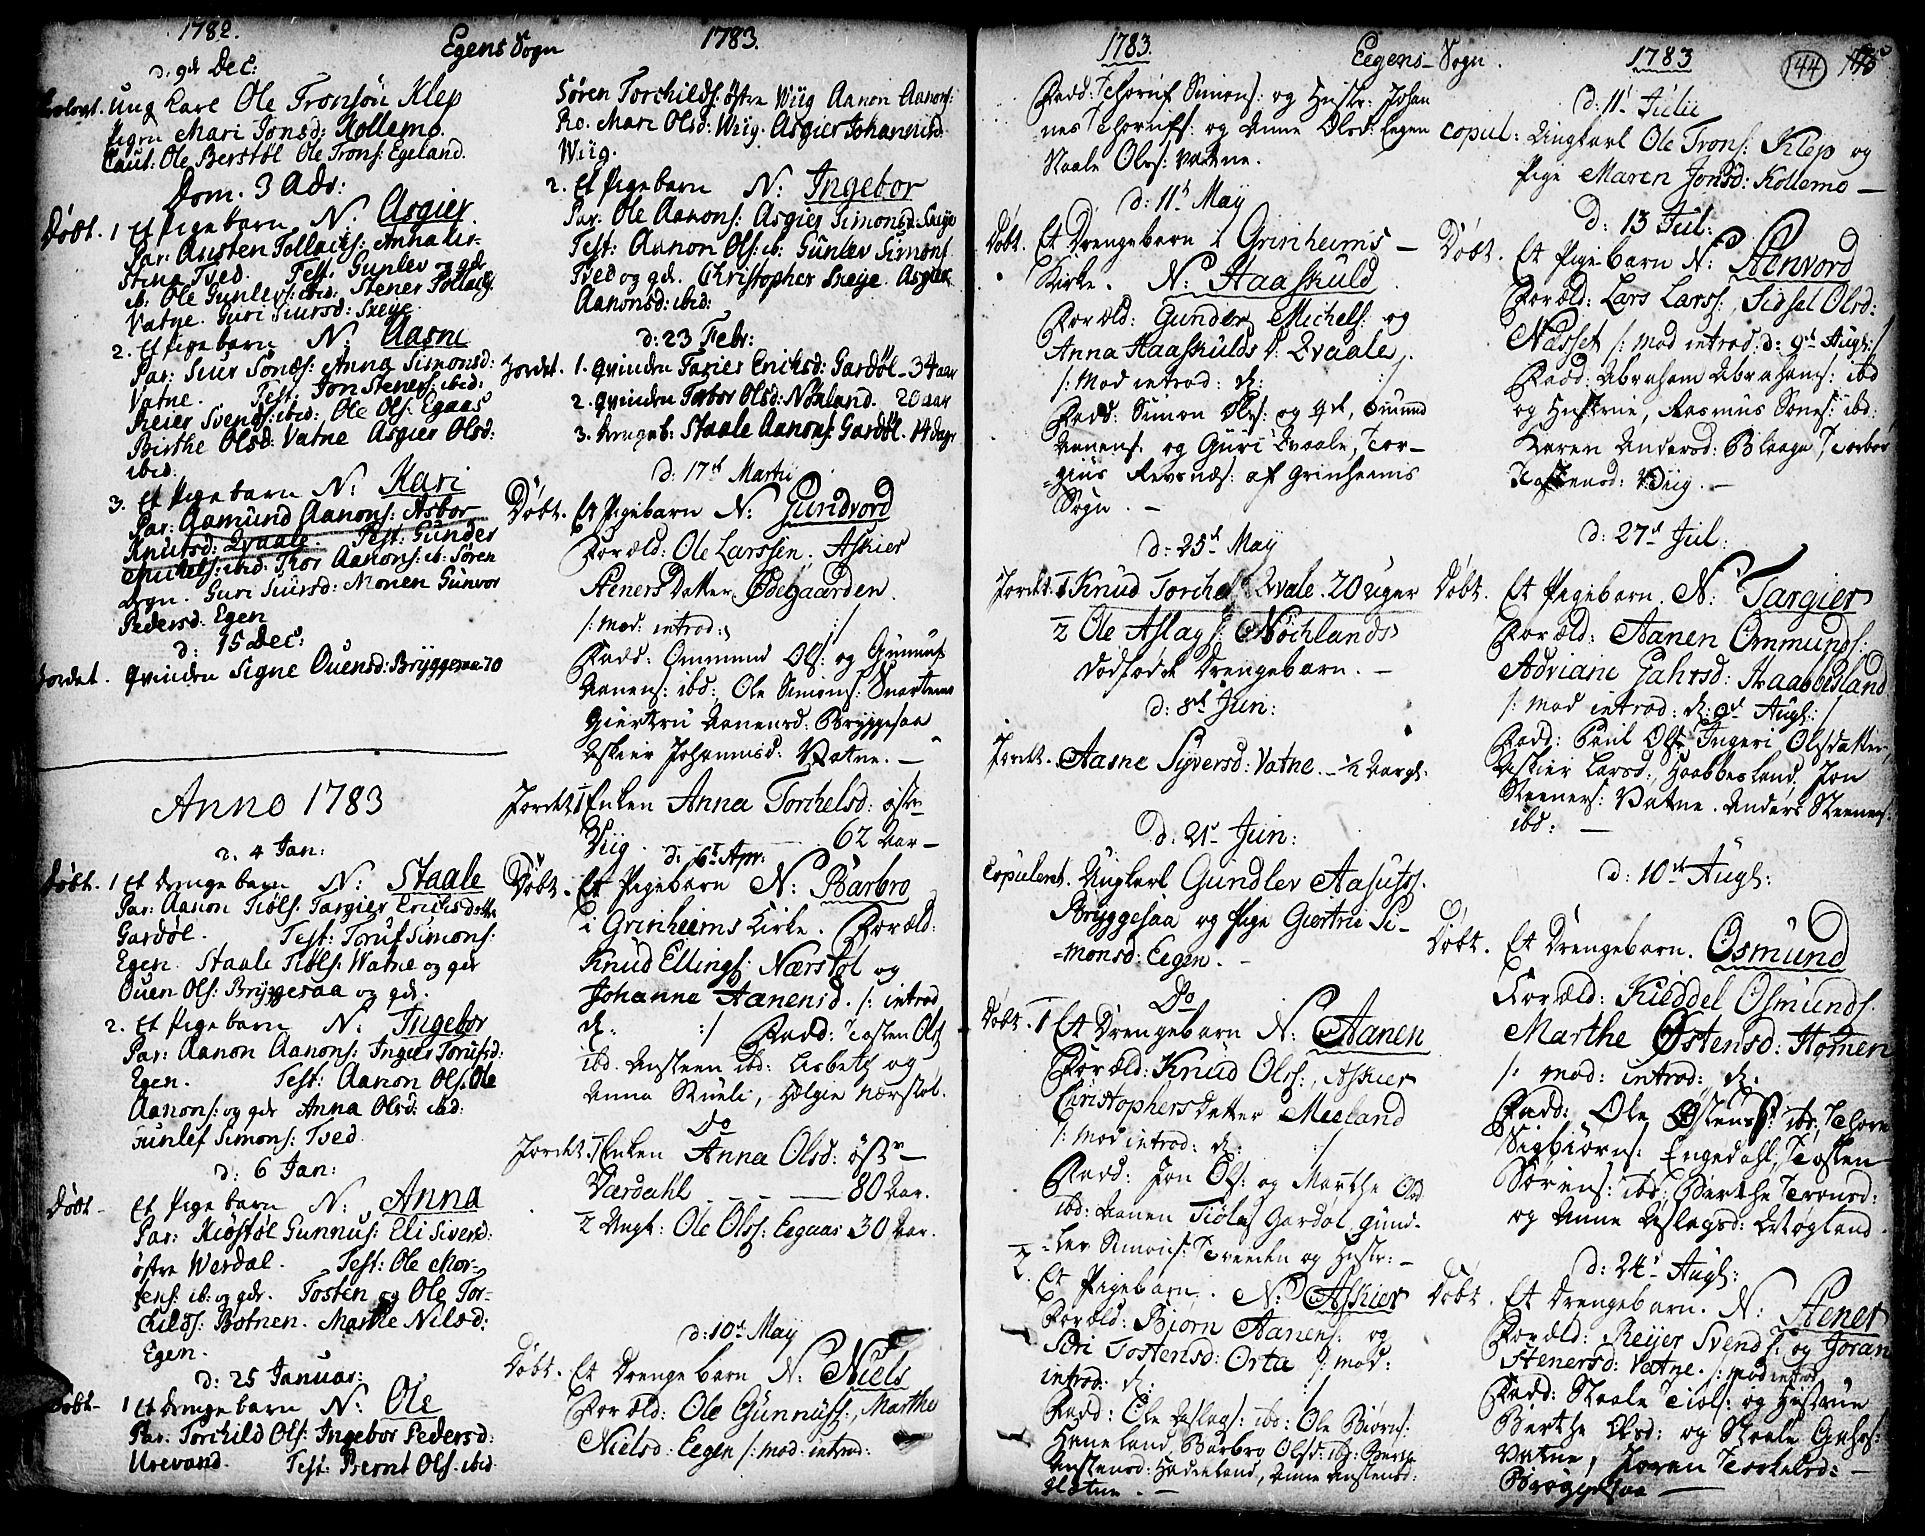 1782.
Egens Sogn
1783.
d. 9de Dec:
Trolovt. Ung Karl Ole Tronsøn Klep
Pigen Mari Jonsd: Kollemo.
Caut: Ole Berstøl Ole Trons: Egeland.
Dom. 3 Adv:
Døbt. 1 Et Pigebarn N: Asgier
Par: Austen Tollacs: Anna
Stina Tved. Test: Gunlev og gde
ib: Ole Gunlevs: ibid. Stener Tollacs:
Vatne. Guri Siursd: Sveje.
2. Et Pigebarn N: Aasne
Par: Siur Sones: Anna Simonsd:
Vatne. Test: Jon Steners: ibid:
Reier Svends: ibid: Ole Ols: Egaas
Birthe Olsd: Vatne Asgier Olsd:
ibid.
3. Et Pigebarn N: Kari
Par: Aamund Aanons: Asbor
Knutsd: Qvaale. Test: Gunder
Michels: ibid. Thor Aanons: ib: Søren
Guri Siursd: Monen Gunvor
Pedersd: Egen
d: 15 Dec:
Jordet. Qvinden Signe Ouensd: Bryggesaa 70
Anno 1783
d. 4 Jan:
Døbt. 1 Et drengebarn N: Staale
Par: Aanon Tiøls: Targier Ericksdatter
Gardøl. Test: Toruf Simons:
Egen. Staale Tiøls: Watne og gde
Ouen Ols: Bryggesaa og gde.
2. Et Pigebarn N: Ingebor
Par: Aanon Aanons: Ingier Torufsd:
Egen. Test: Aanon Ols: Ole
Aanons: og gde Anna Olsd: ibid:
Gunlef Simons: Tved.
d: 6 Jan:
Døbt - Et Pigebarn N: Anna
Par: Kiøstøl Gunnufs: Eli Siversd:
østre Werdal. Test: Ole Mor-
tens: ib: og gde. Tosten og Ole Tor-
childs: Botnen. Marthe Nilsd:
Egen.
d: 25 Januar:
Døbt - 1 Et drengebarn N: Ole
Par: Torchild Ols: Ingebor Pedersd:
Urevand. Test: Bernt Ols: ibid
Søren Torchilds: østre Wiig Aanon Aanons:
Ro. Mari Olsd: Wiig. Asgier Johannisd.
Wiig.
2. Et Pigebarn N: Ingebor
Par: Ole Aanons: Asgier Simonsd: Sveje
Test: Aanon Ols: ib: Gunlev Simons
Tved og gde. Christopher Sveje. Asgier
Aanonsd: ibid:
d: 23 Febr:
Jordet. 1. Qvinden Targier Ericksd: Gardøl - 34 aar
2. Qvinden Torbor Olsd: Nøkland. 20 aar
3. Drengeb: Staale Aanons: Gardøl. 14 dage
d: 17de Martii
Døbt. Et Pigebarn N: Gundvord
Foræld: Ole Larssen. Askier
Steners Datter Ødegaarden.
/: mod: introd: :/
Fadd: Ommund Ols: og Gunnuf
Aanens: ibd: Ole Simons: Snartemo
Giertru Aanensd: Bryggesaa
Askier Johannisd: Vatne. —
Jordet 1 Enken Anna Torchelsd: østre
Viig. 62 Aar —
d: 6t Apr:
Døbt. Et Pigebarn N: Barbro
i Grinheims Kirke. Foræld:
Knud Ellings: Nærstøl og
Johanne Aanensd. /: introd
d: :/ Fadd: Tosten Ols
ibd. Austeen ibd: Lisbeth og
Anna Skueli, Helgie Nærstøl.
Do
Jordet. 1 Enken Anna Olsd: østre
Værdahl - - - 80 Aar.
2 Ungk: Ole Olss: Eegaas 30 Aar.
d: 10de May
Døbt. Et Drengebarn N: Niels
Foræld: Ole Gunnufs:, Marthe
Nielsd: Eegen /: mod: introd:
1783.
Eegens Sogn.
1783
144
Fadd: Thoruf Simons: og Hustr: Johan
nes Thorufs: og Anne Olsd: Eegen
Staale Olss: Vatne.
d: 11t May
Døbt. Et Drengebarn i Grinheims -
Kirke. N: Haaskuld
Foræld: Gunder Michels: og
Anna Haaskulds D: Qvaale.
/: Mod introd: d: :/
Fadd: Simon Ols: og gde, Omund
Aanens: og Guri Qvaale, Tor-
giuls Revsnæs: af Grinheims
Sogn. -
d: 25t May
Jordet. 1 Knud Torchels Qvale. 20 uger
2 Ole Aslags: Nøchlands
dødfødde Drengebarn. -
d: 8t Jun:
Jordet. Aasne Syversd: Vatne. - 1/2 Aargl:
d: 21t Jun:
Copuleret. Ungkarl Gundlev Aasulfs.
Bryggesaa og Pige Giertrue Si-
monsd: Eegen. -
Do
Døbt. 1 Et Drengebarn N: Aanen
Foræld: Knud Olss:, Askier
Christophers Datter Meeland
/: mod introd: d: :/
Fadd: Jon Ols: og Marthe Olsd
ibd: Aanen Tiøls Gardøl, Gund-
lev Simons: Tveeden og Hustr: -
2. Et Pigebarn. N: Askier
Foræld: Biørn Aanens: og
Siri Tostensd: Orta /: mod:
introd: d: :/
Fadd: Ole Aslags: ibd: Ole Biørns:
Haneland, Barbro Olsd: ibd: Berte
Austensd: Hadeland, Anne Austensd:
Slotne. -
d: 11t Julii
Copul: Ungkarl Ole Trons: Klep og
Pige Maren Jonsd: Kollemo —
d: 13 Jul:
Døbt. Et Pigebarn N: Stenvord
Foræld: Lars Larss:, Sidsel Olsd:
Næsset /: mod introd: d: 9de Augl: /
Fadd: Abraham Abrahams: ibd
og Hustrue, Rasmus Sones: ibd:
Karen Andersd: Blaage, Torbor
Tostensd: Viig. -
d: 27t Jul:
Døbt. Et Pigebarn. N: Targier
Foræld: Aanen Ommunds:
Adriane Gahrsd: Haabbesland
/: mod introd: d: 9de Augl: /
Fadd: Poul Ols: Ingeri Olsdatter,
Askier Larsd:, Haabbesland, Jon
Steeners: Vatne. Anders Steeners:
ibd: —
d: 10de Augl:
Døbt. Et Drengebarn. Osmund
Foræld: Kieddel Osmunds:
Marthe Østensd: Homen
/: mod: introd: d:
Fadd: Ole Østens: ibd, Thore
Sigbiørns: Engedahl, Tosten
Sørens: ibd: Berthe Tronsd:
og Anne Aslagsd: Møgland.
d: 24t Augl:
Døbt. Et Drengebarn. N: Stener
Foræld: Reijer Svends: og Joran
Stenersd: Vatne. /: mod introd
Fadd: Staale Tiøls: og Hustrue
Berthe Olsd: og Staale Gahrs:
Vatne, Joran Torkelsd: -
Bryggesaa —